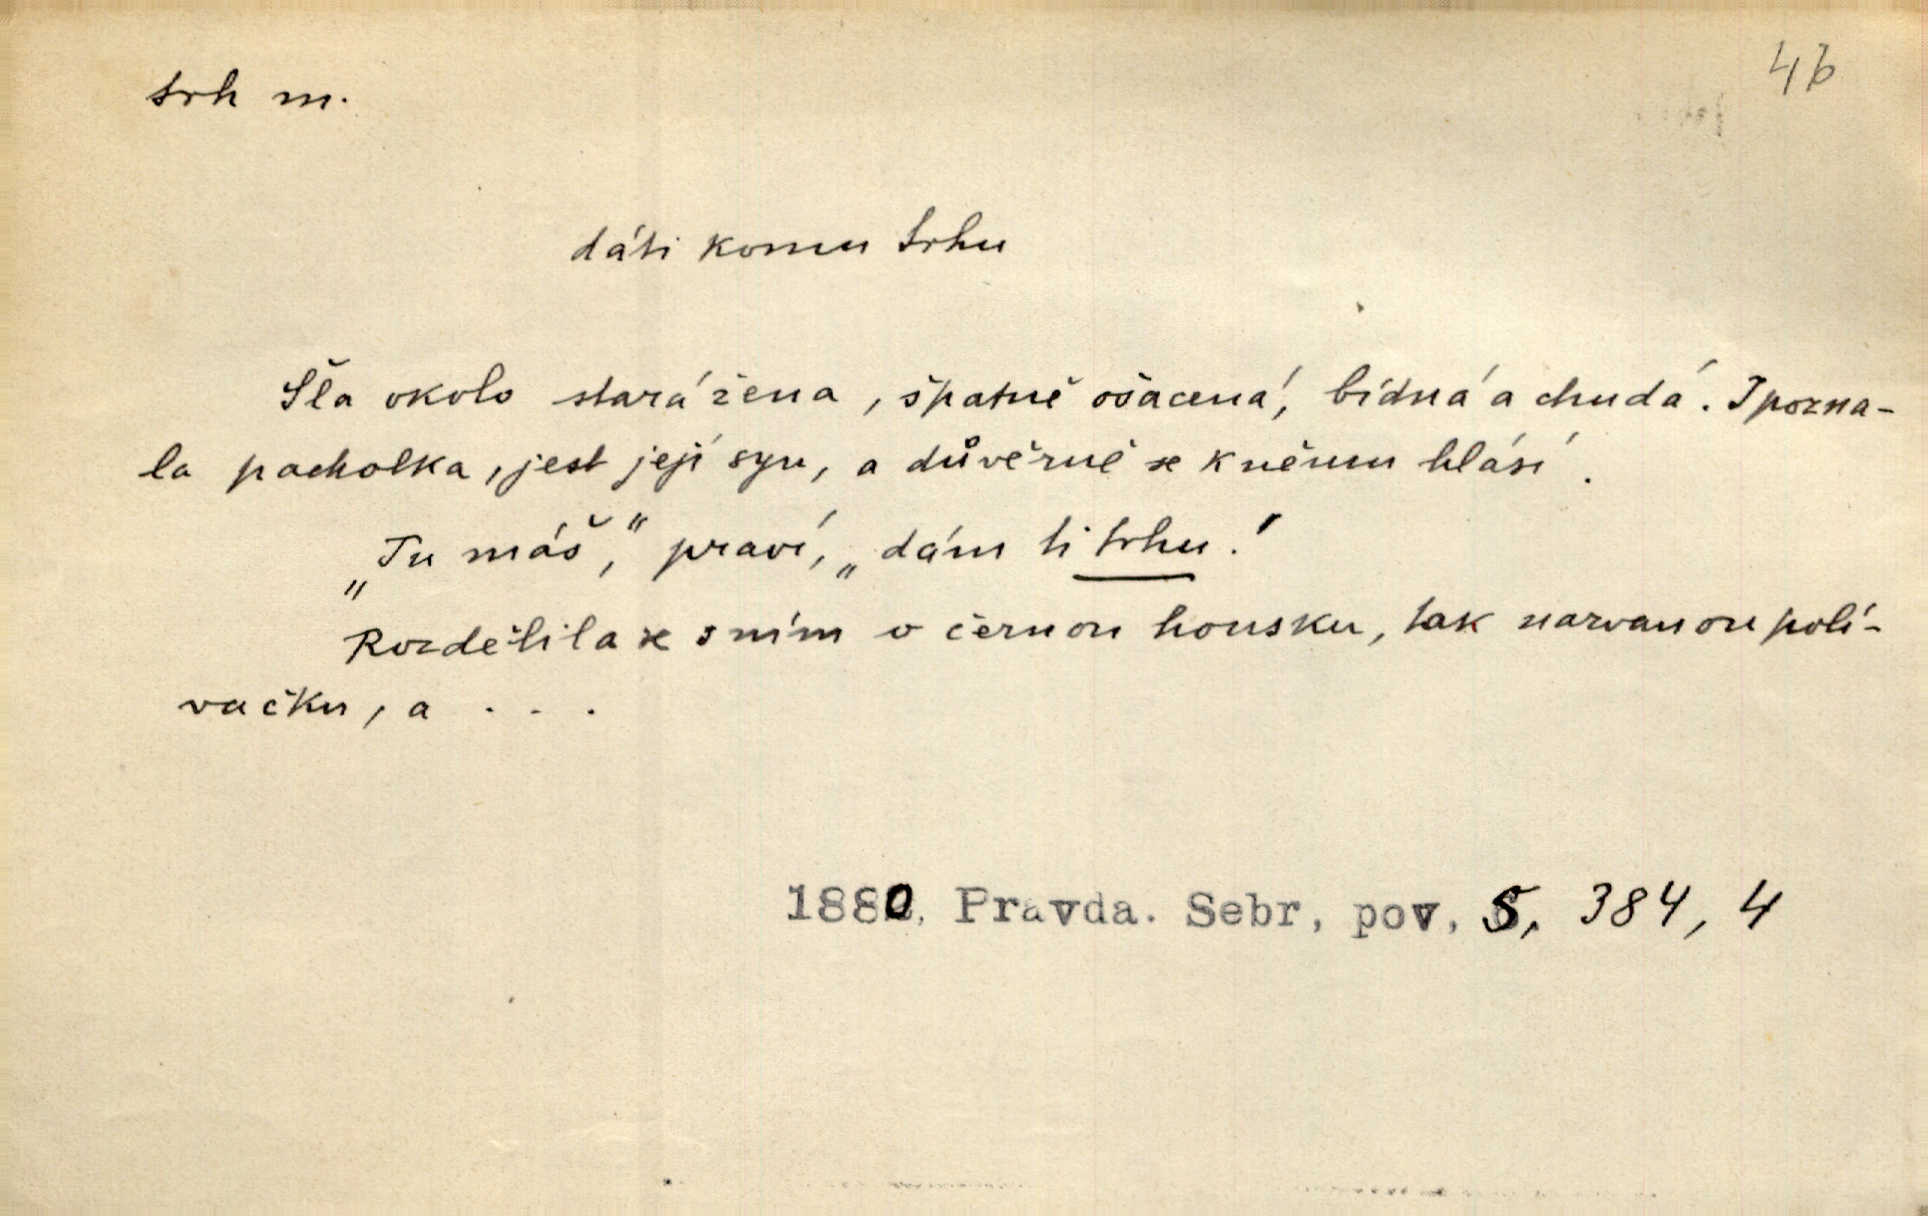 46
trh m.
dáti komu trhu
Šla okolo stará žena, špatně ošacená, bídná a chudá. I pozna-
la pacholka, jest její syn, a důvěrně se k němu hlásí.
„Tu máš,“ praví, „dám ti trhu.!
Rozdělila se s ním o černou housku, tak narvanou polí-
vačku, a . . .
1880, Pravda. Sebr, pov, 5, 384, 4